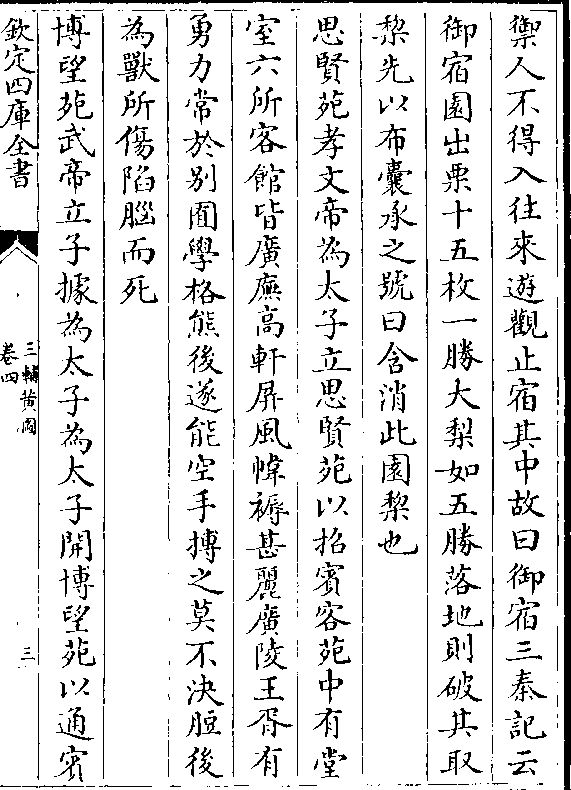 禦人不得入往來遊觀止宿其中故曰御宿三秦記云
御宿園出栗十五枚一勝大梨如五勝落地則破其取
梨先以布囊承之號曰含消此園梨也
思賢苑孝文帝為太子立思賢苑以招賓客苑中有堂
室六所客館皆廣廡高軒屏風幃褥甚麗廣陵王胥有
勇力常於别囿學格熊後遂能空手搏之莫不決脰後
為獸所傷陷腦而死
博望苑武帝立子據為太子為太子開博望苑以通賓
欽定四庫全書
三輔黄圖
卷四
三